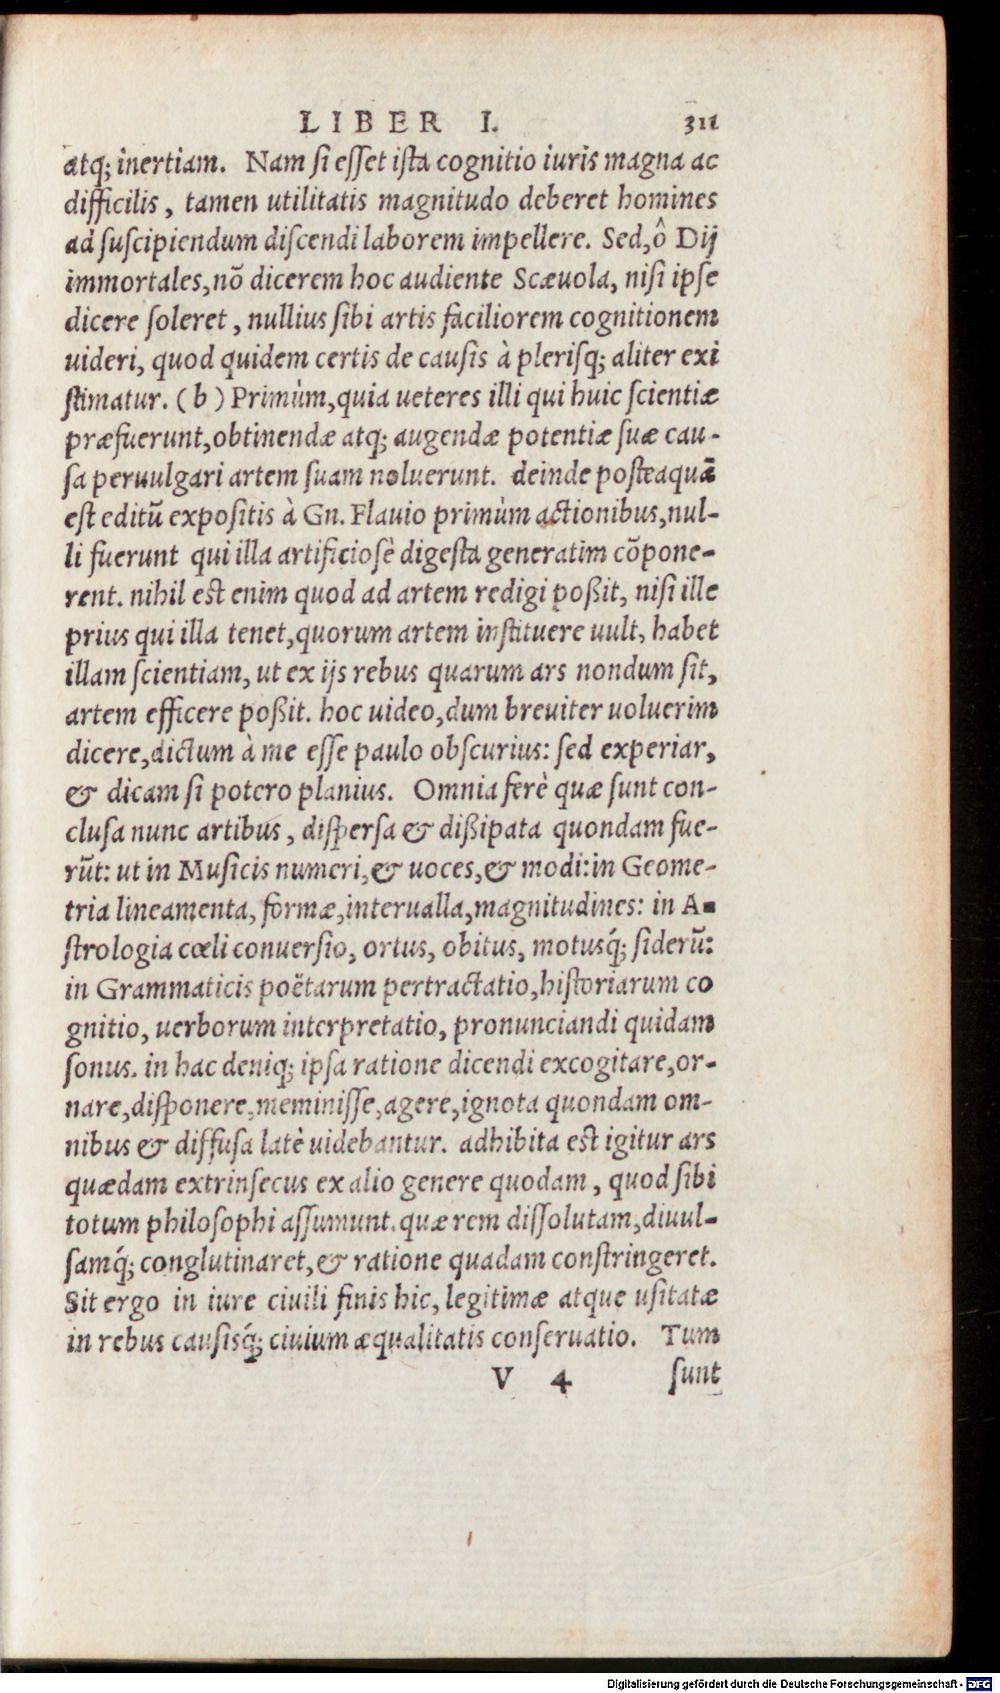 LIBER I. 311
atq; inertiam. Nam si esset ista cognitio iuris magna ac
difficilis, tamen utilitatis magnitudo deberet homines
ad suscipiendum discendi laborem impellere. Sed, ô Dij
immortales, nō dicerem hoc audiente Scæuola, nisi ipse
dicere soleret, nullius sibi artis faciliorem cognitionem
uideri, quod quidem certis de causis à plerisq; aliter exi
stimatur. (b) Primùm, quia ueteres illi qui huic scientiæ
præfuerunt, obtinendæ atq; augendæ potentiæ suæ cau-
sa peruulgari artem suam noluerunt. deinde posteaquā
est editū expositis à Gn. Flauio primùm actionibus, nul-
li fuerunt qui illa artificiosè digesta generatim cōpone-
rent. nihil est enim quod ad artem redigi poßit, nisi ille
prius qui illa tenet, quorum artem instituere uult, habet
illam scientiam, ut ex ijs rebus quarum ars nondum sit,
artem efficere poßit. hoc uideo, dum breuiter uoluerim
dicere, dictum à me esse paulo obscurius: sed experiar,
& dicam si potero planius. Omnia ferè quæ sunt con-
clusa nunc artibus, dispersa & dißipata quondam fue-
rūt: ut in Musicis numeri, & uoces, & modi: in Geome-
tria lineamenta, formæ, interualla, magnitudines: in A-
strologia cœli conuersio, ortus, obitus, motusq́; siderū:
in Grammaticis poëtarum pertractatio, historiarum co
gnitio, uerborum interpretatio, pronunciandi quidam
sonus. in hac deniq; ipsa ratione dicendi excogitare, or-
nare, disponere, meminisse, agere, ignota quondam om-
nibus & diffusa latè uidebantur. adhibita est igitur ars
quædam extrinsecus ex alio genere quodam, quod sibi
totum philosophi assumunt. quæ rem dissolutam, diuul-
samq́; conglutinaret, & ratione quadam constringeret.
Sit ergo in iure ciuili finis hic, legitimæ atque usitatæ
in rebus causisq́; ciuium æqualitatis conseruatio. Tum
V 4 sunt
Digitalisierung gefördert durch die Deutsche Forschungsgemeinschaft - DFG